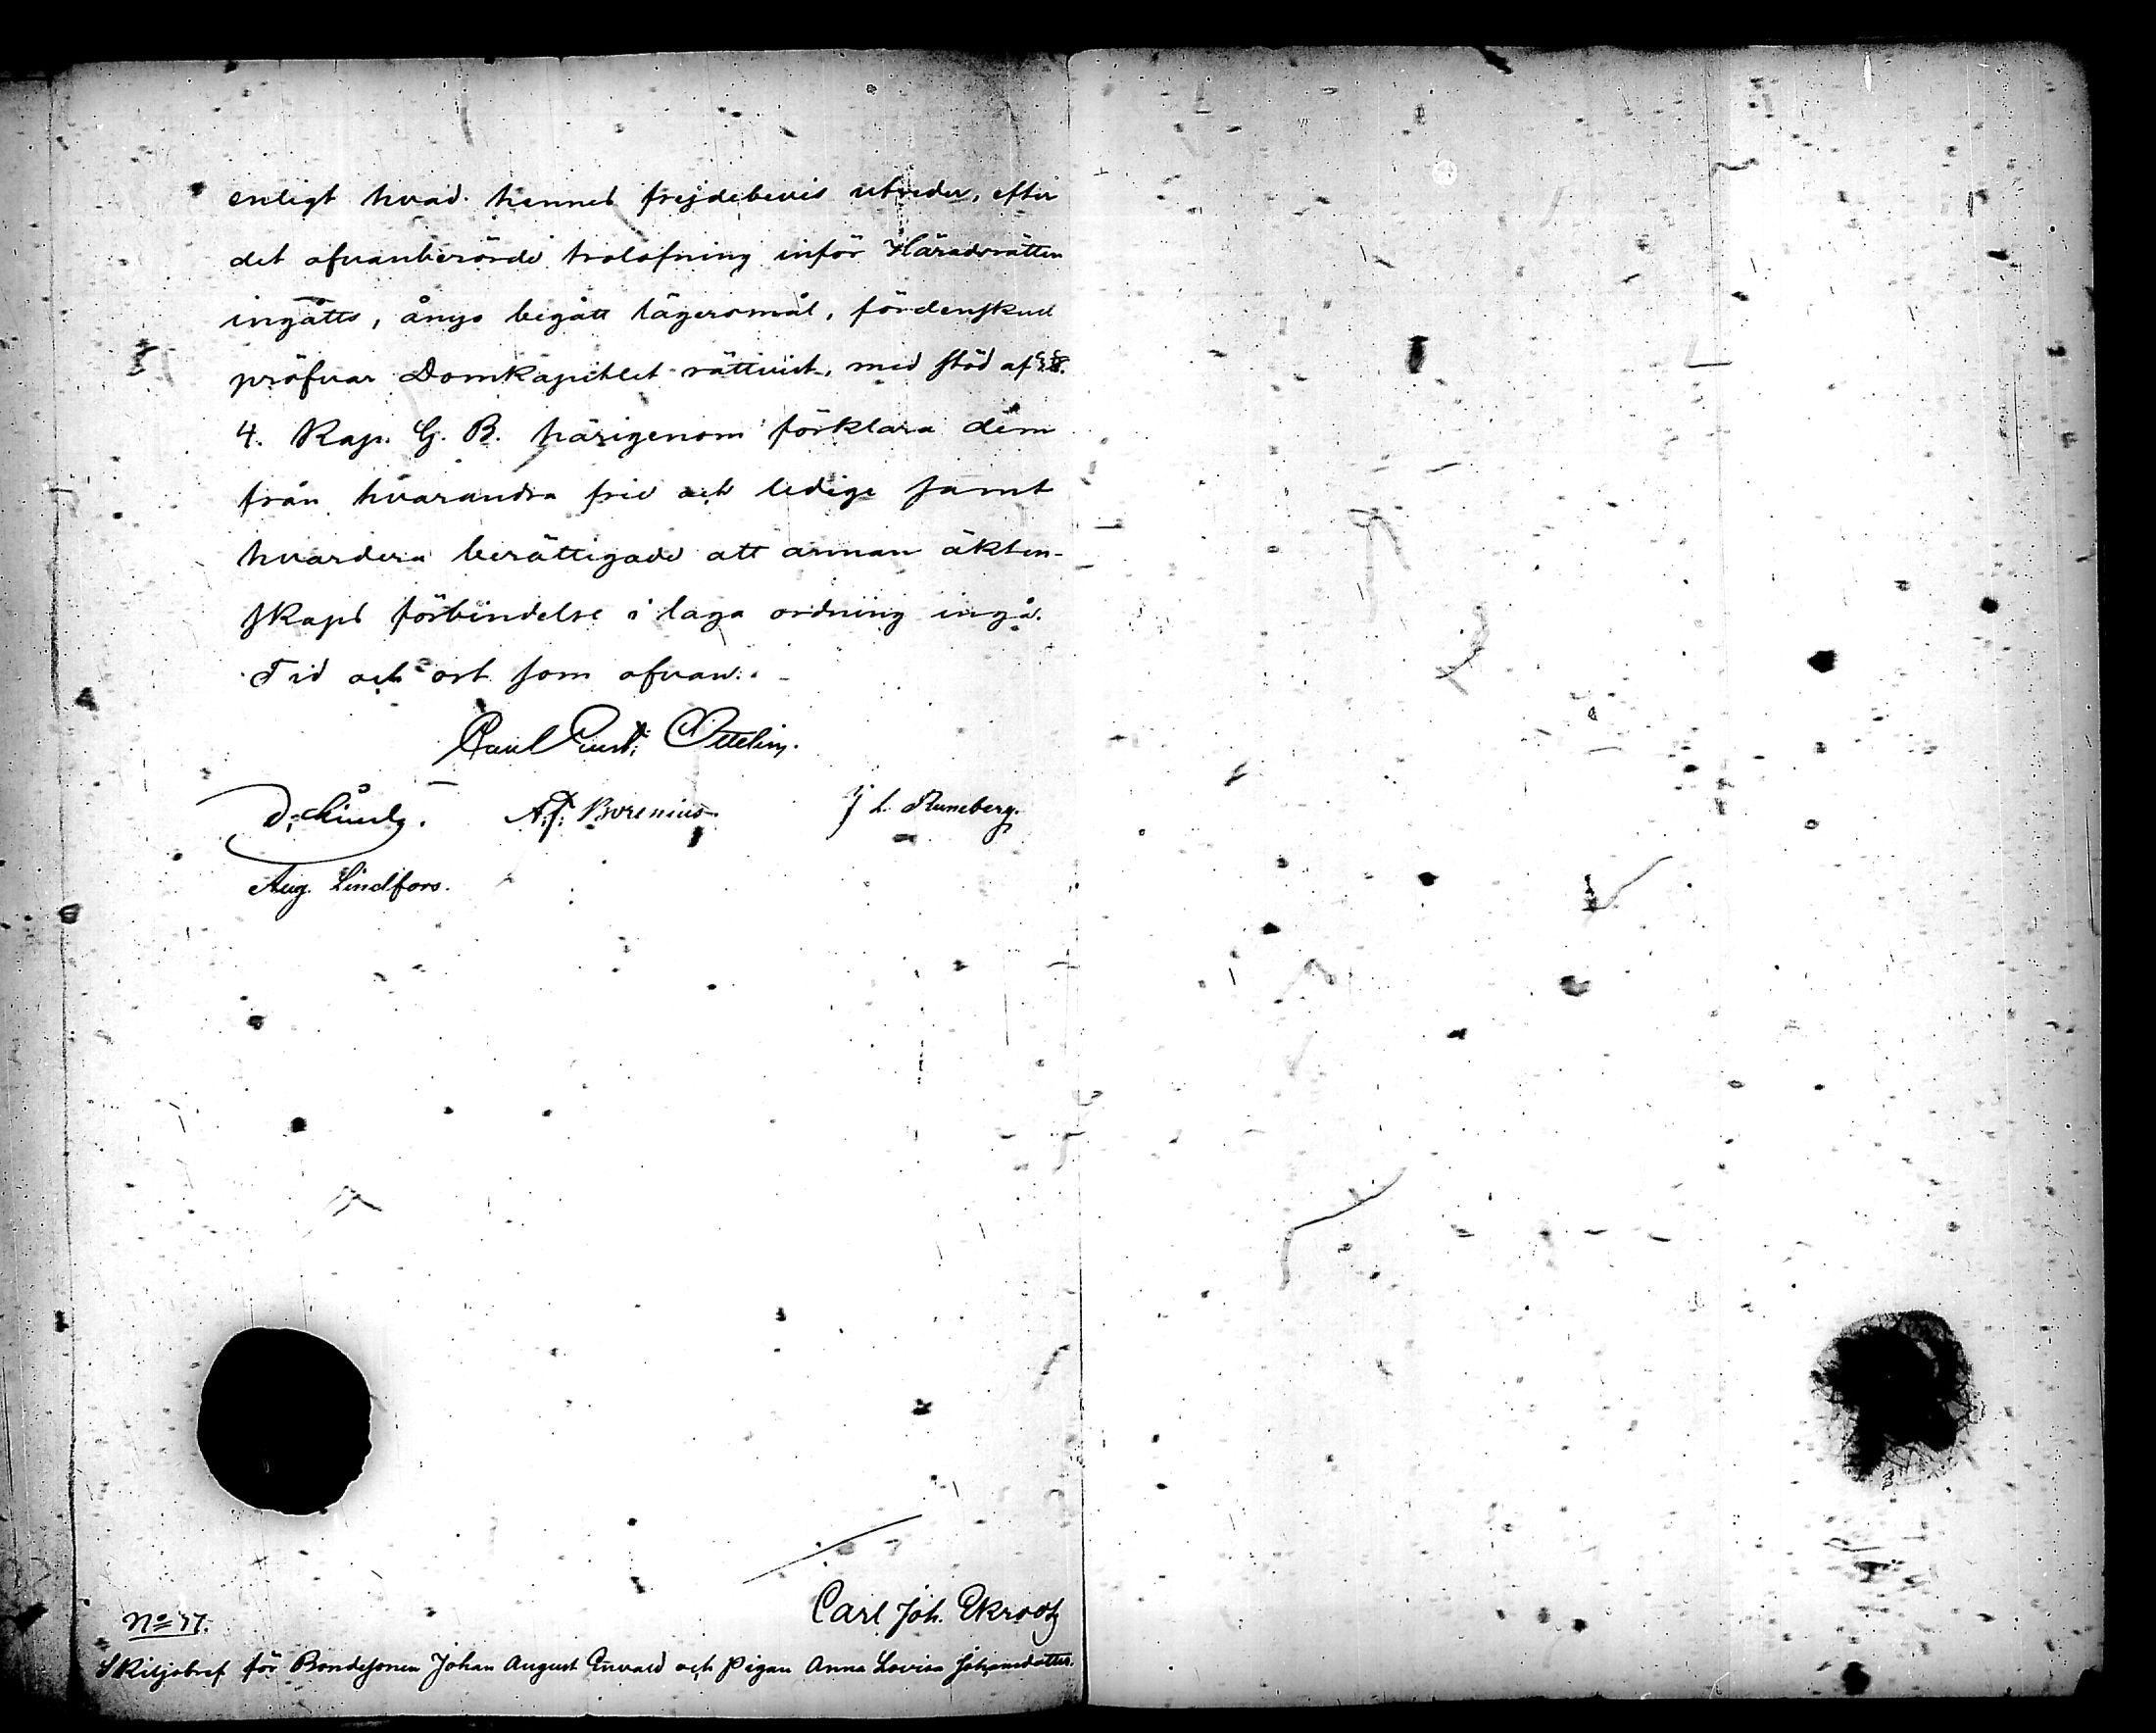 enligt hvad hennes frejdebevis utreder, efter
det ofvanberörde trolofning inför Häradsrätten
ingåtts, ånyo begått lägersmål, fördenskud
pröfvar Domkapitlet rättvist, med stöd af
4. Kap. G. B. härigenom förklara dem
från hvarandra frie och ledige samt
hvardera berättigade att annan äkten-
skaps förbindelse i laga ordning ingå.
Tid och ort som ofvan.
Carl Gust. Ottelin.
A. F. Borenius
J L. Runeberg.
Aug. Lindfors.
Carl Joh. Ekroos
No 77.
Skiljobref för Bondesonen Johan August Envald och Pigan Anna Lovisa Johansdotter.